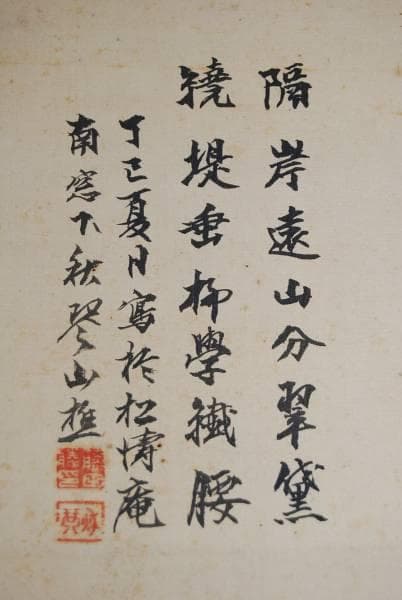 隔岸遠山分翠黛
繞堤垂柳學纖腰
丁巳夏日寫於松濤庵
南窓下秋琴山樵